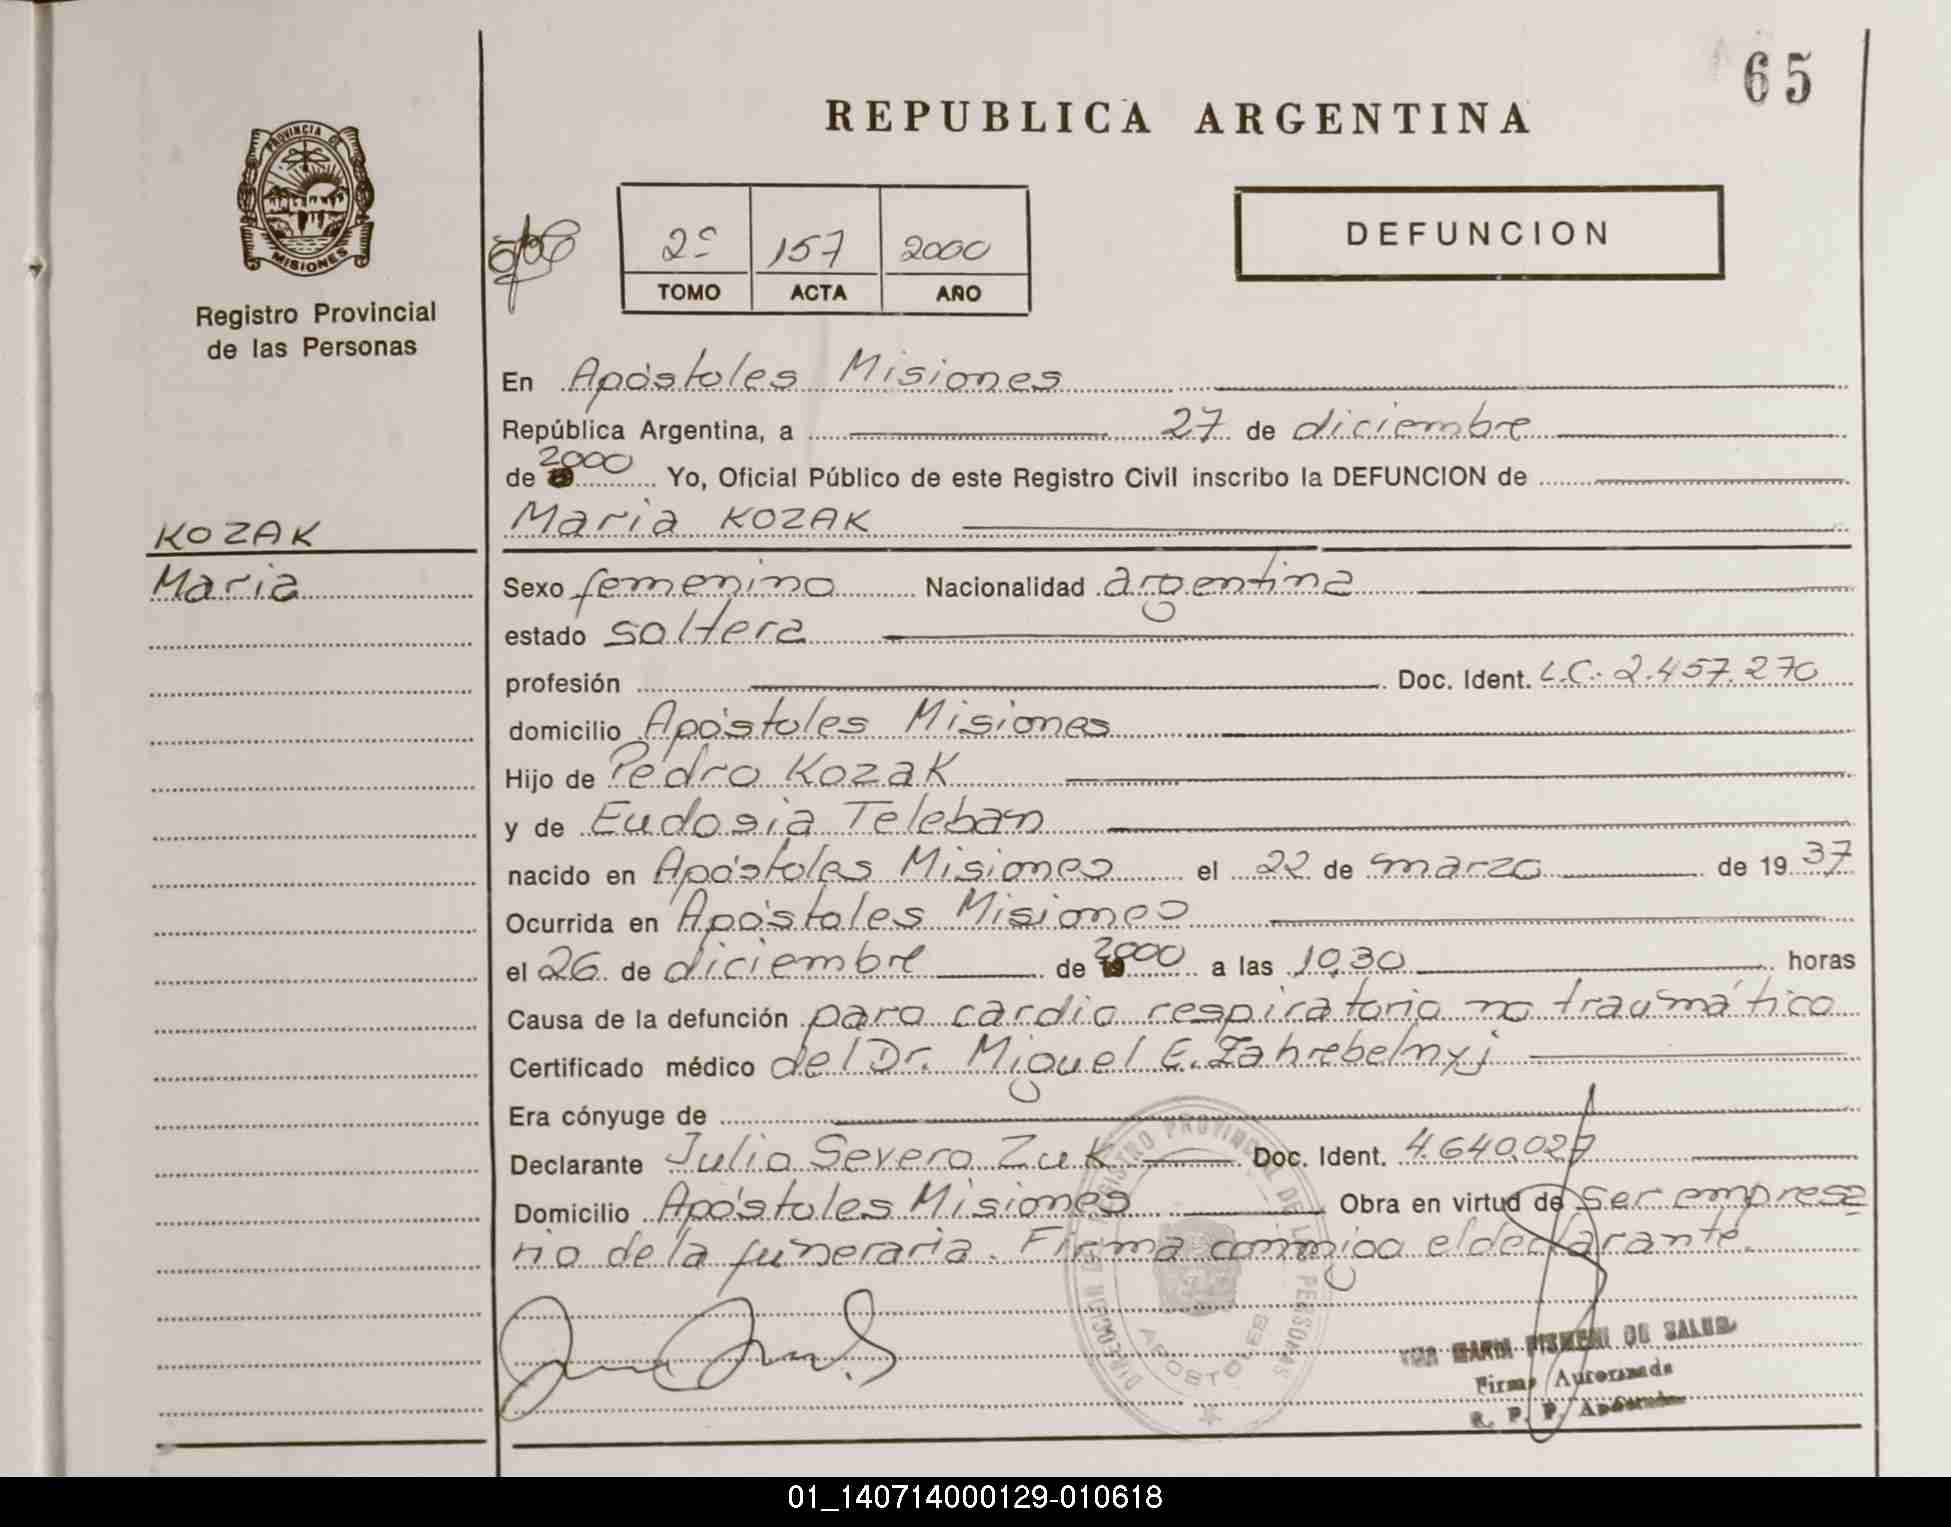 65
REPUBLICA ARGENTINA
PROVINCIA DE
MISIONES
Registro Provincial
de las Personas
2º 157 2000
TOMO ACTA AÑO
DEFUNCION
En Apóstoles Misiones
República Argentina, a 27 de diciembre
de 2000 Yo, Oficial Público de este Registro Civil inscribo la DEFUNCION de
KOZAK
Maria
Maria KOZAK
Sexo femenino Nacionalidad argentina
estado soltera
profesión Doc. Ident. L.C. 2.457.270
domicilio Apóstoles Misiones
Hijo de Pedro Kozak
y de Eudosia Teleban
nacido en Apóstoles Misiones el 22 de marzo de 19 37
Ocurrida en Apóstoles Misiones
el 26 de diciembre de 2000 a las 10,30 horas
Causa de la defunción paro cardio respiratorio no traumático
Certificado médico del Dr. Miguel E. Zahrebelnyj
Era cónyuge de
Declarante Julio Severo Zuk Doc. Ident. 4.640.027
Domicilio Apóstoles Misiones Obra en virtud de ser empresa
rio de la funeraria. Firma conmigo el declarante.
DIRECCION DEL REGISTRO PROVINCIAL DE LAS PERSONAS
APOSTOLES
MARIA DE SALUD
Firma Autorizada
R. P. P. Apóstoles
01_140714000129-010618